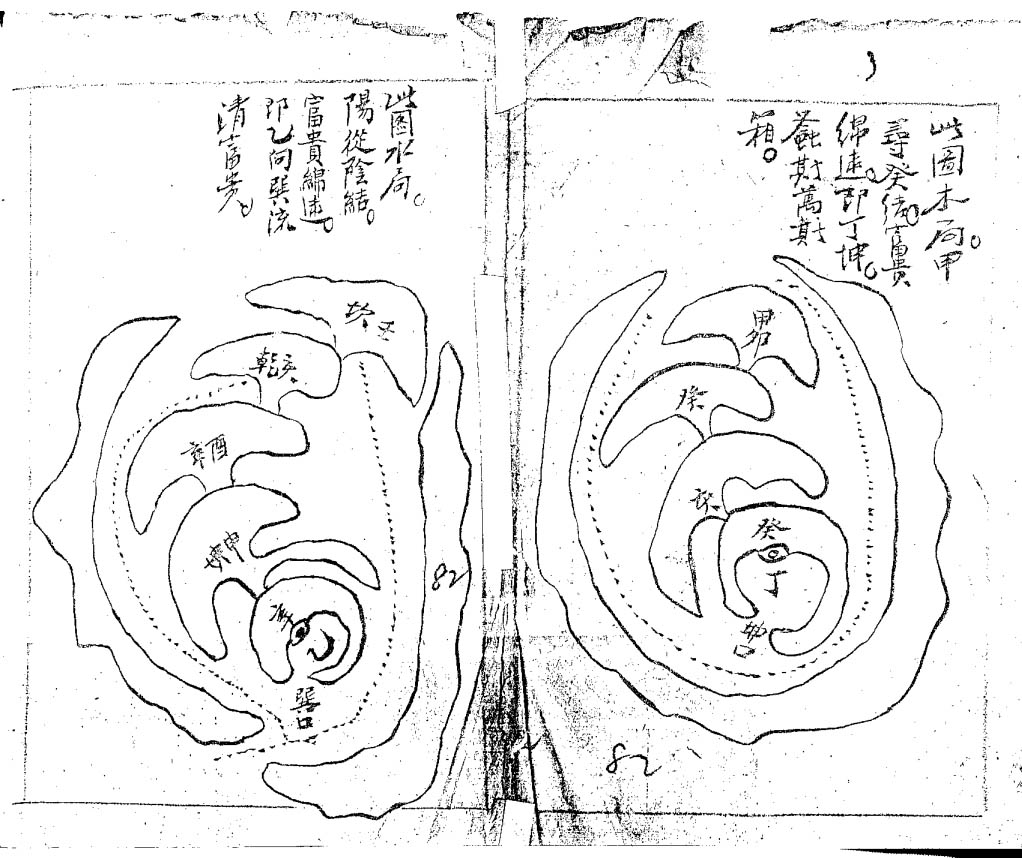 此圖木局。甲
尋癸緒。富貴
綿遠。卽丁坤。
螽斯萬斯
箱。
甲卯
癸
癸
丁
82
此圖水局。
陽從陰結。
富貴綿遠。
即乙向巽流
清富貴。
乾亥
辛酉
坤申
巽口
82